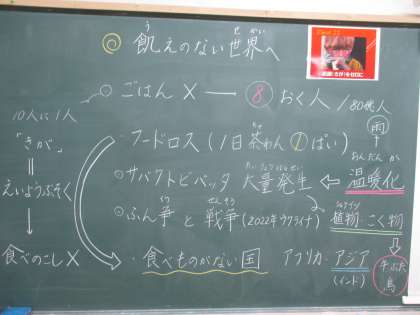 飢えのない世界へ
う
せかい
ごはん × → 8 おく人 /80億人
10人に1人
「きが」
‖
えいようぶそく
↓
食べのこし×
・フードロス (1日茶わん1ぱい)
ちゃ
サバクトビバッタ 大量発生 ← 温暖化
たいりょうはっせい
おんだんか
雨
ふん争と戦争 (2022年ウクライナ)
そう
せんそう
植物・こく物
牛ぶた鳥
・食べものがない国 アフリカ・アジア
くに
(インド)